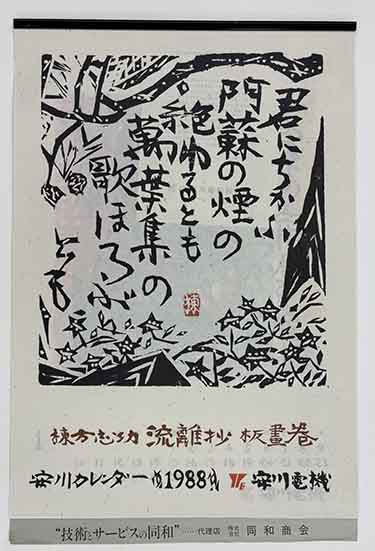 君にちかふ
阿蘇の煙の
絶ゆるとも
萬葉集の
歌ほろぶ
とも
棟
棟方志功 流離抄 板畫巻
安川カレンダー 1988 安川電機
"技術とサービスの同和"……代理店 株式会社 同和商会